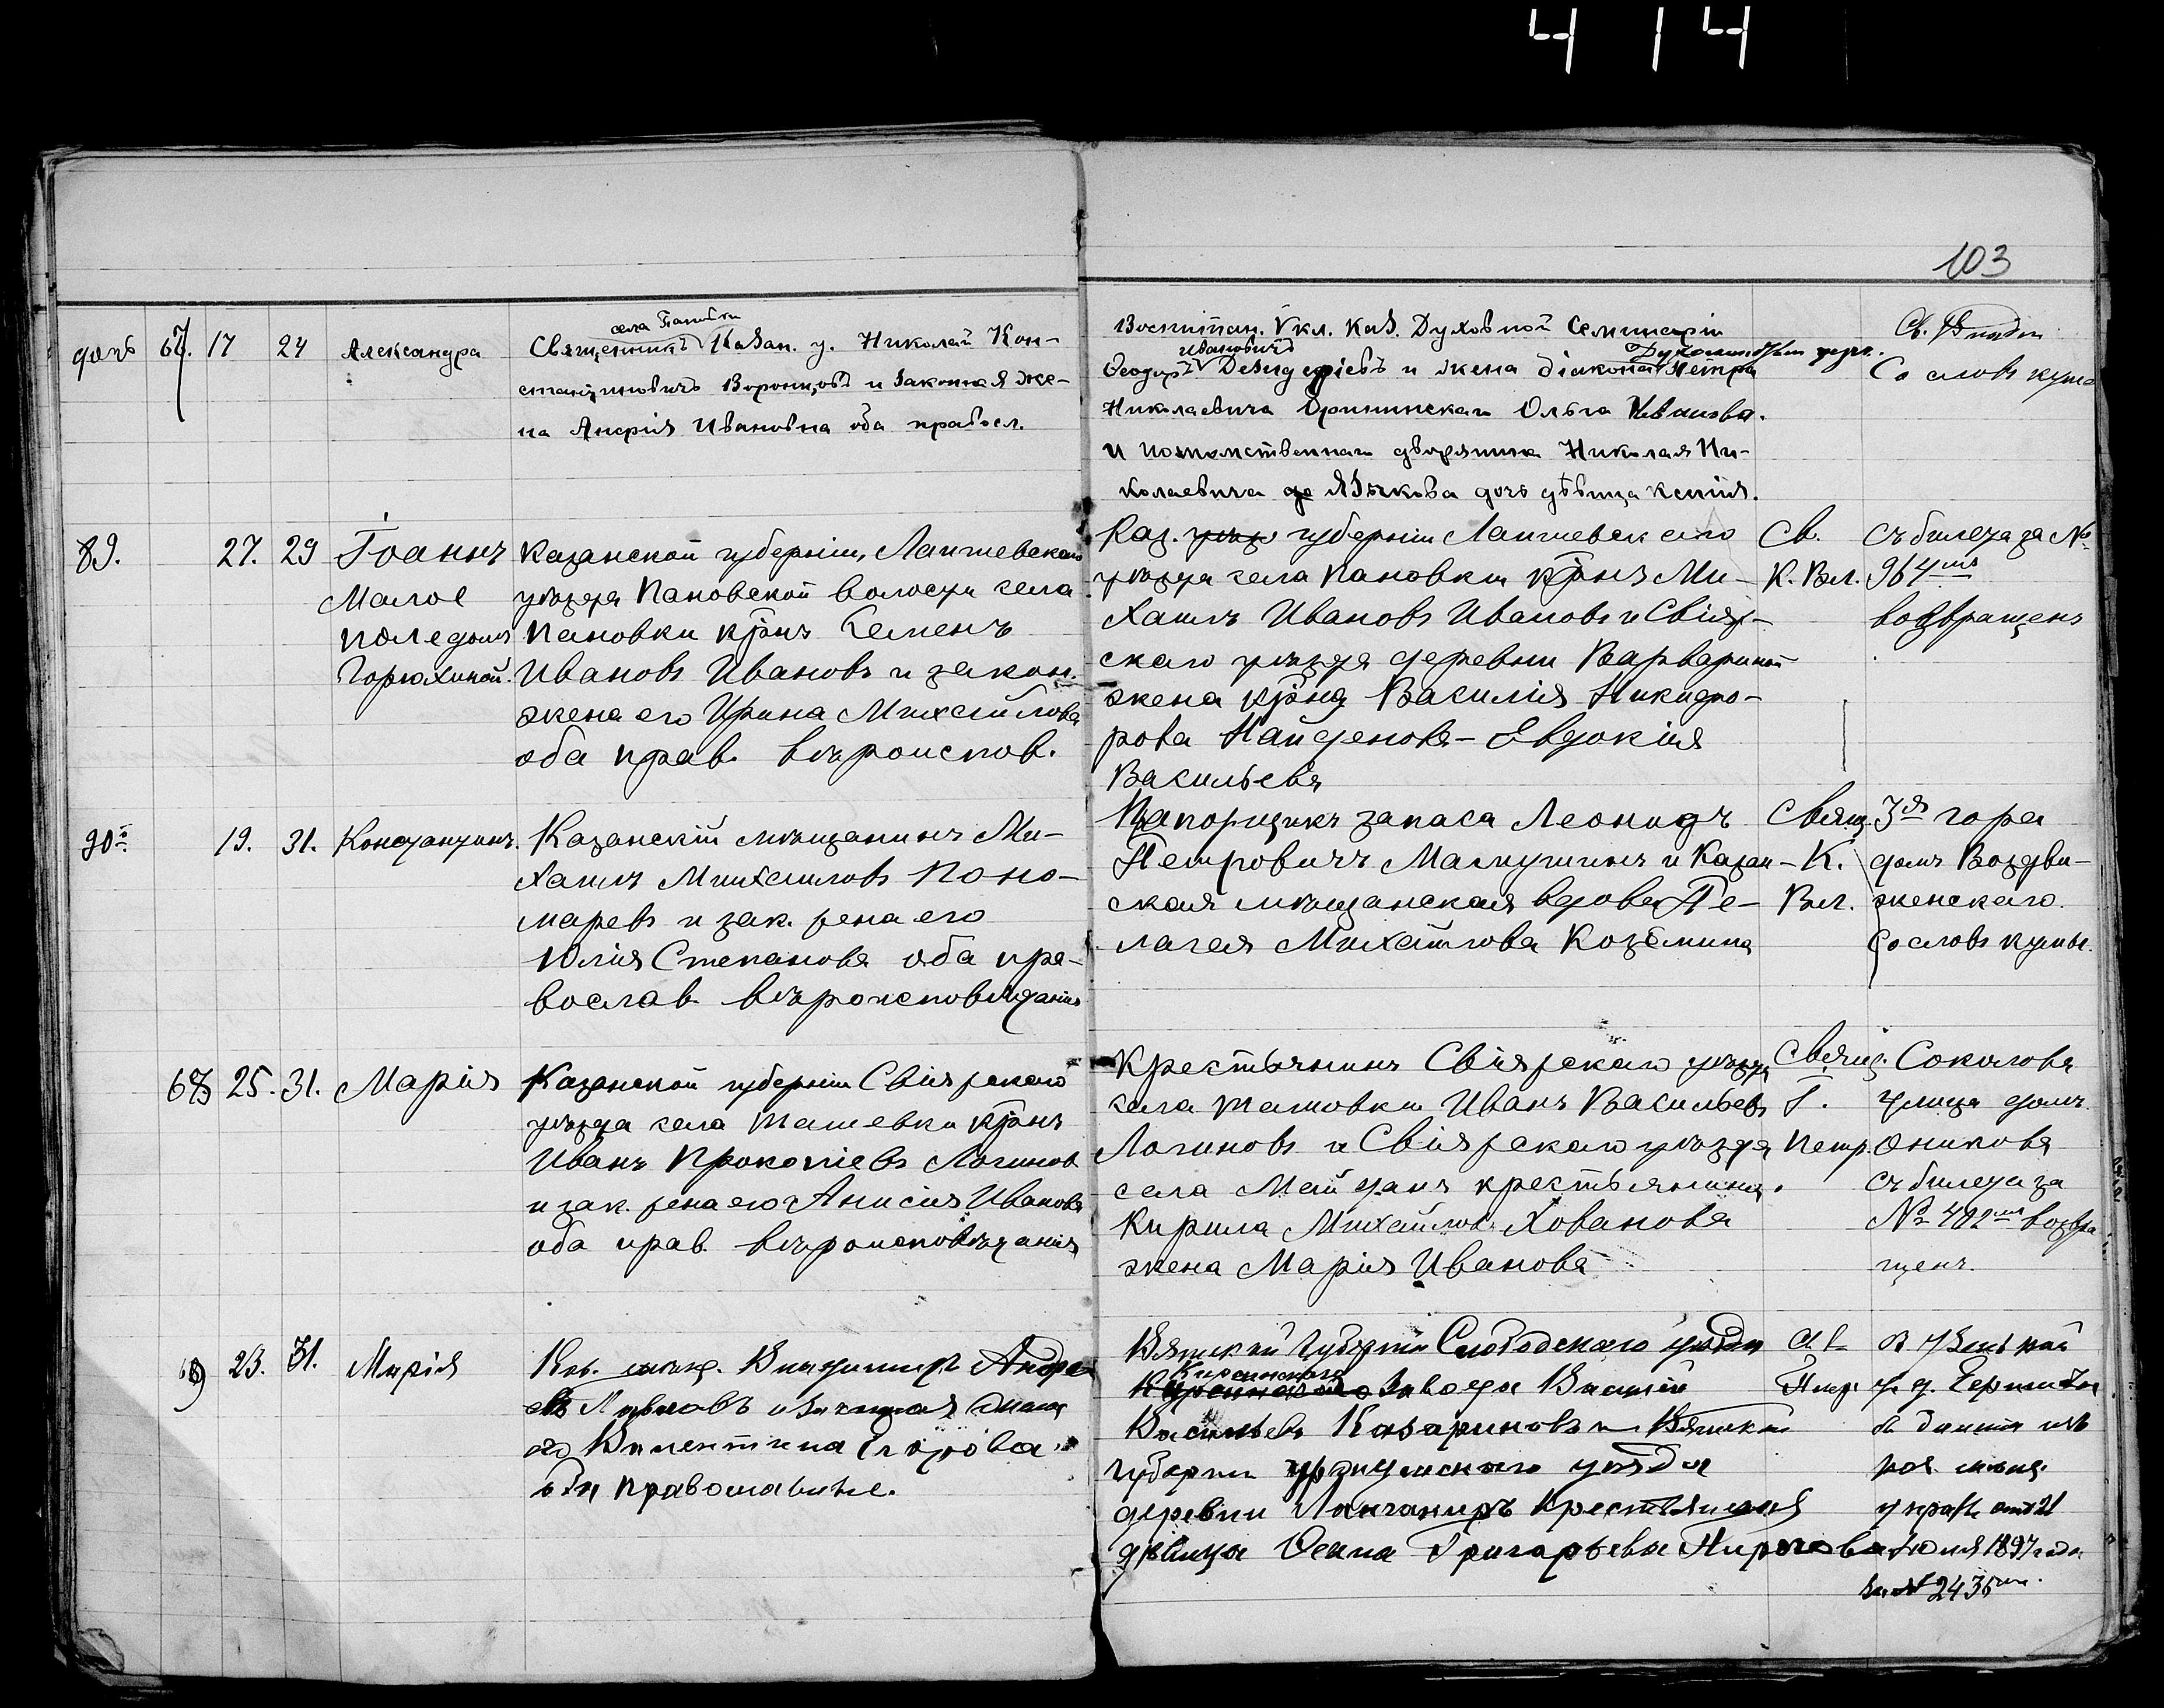 414
103
дочь 67. 17 24 Александра
села Пановки
Священникъ Казан. у. Николай Кон-
стантиновичъ Воронцовъ и законная же-
на Анфія Ивановна оба правосл.
Воспитан. V кл. Каз. Духовной Семинаріи
Ивановичъ
Ѳеодоръ Дезидеріевъ и жена діакона Петра
Николаевича Ольга Иванова.
и потомственнаго дворянина Николая Ни-
колаевича де Языкова дочь дѣвица Ксенія.
Св.
Со словъ кума
89. 27. 29 Іоаннъ
Малое
поле домъ
Горюхиной.
Казанской губерніи, Лаишевскаго
уѣзда Пановской волости села
Пановки крнъ Семенъ
Ивановъ Ивановъ и закон.
жена его Ирина Михайлова
оба прав. вѣроиспов.
Каз. уѣзд губерніи Лаишевскаго
уѣзда села Пановки крнъ Ми-
хаилъ Ивановъ Ивановъ и Свіяж-
скаго уѣзда деревни Варвариной
жена крна Василія Никифо-
рова Найденова - Евдокія
Васильева
Св.
К. Вл.
Съ билета за №
964мъ
возвращенъ
90. 19. 31. Константинъ.
Казанскій мѣщанинъ Ми-
хаилъ Михаиловъ Поно-
маревъ и зак. жена его
Юлія Степанова оба пра-
вослав. вѣроисповѣданія
Прапорщикъ запаса Леонидъ
Петровичъ Малмушинъ и Казан-
ская мѣщанская вдова Пе-
лагея Михайлова Козьмина
Свящ.
К.
Вл.
3я гора
домъ Воздви-
женскаго.
Со словъ кумы.
68 25. 31. Марія
Казанской губерніи Свіяжскаго
уѣзда села Ташевки крнъ
Иванъ Прокопіевъ Логинов
и зак. жена его Анисія Иванова
оба прав. вѣроисповѣданія
Крестьянинъ Свіяжскаго уѣзда
села Ташовки Иванъ Васильевъ
Логиновъ и Свіяжскаго уѣзда
села Майданъ крестьянина
Кирила Михайлова Хованова
жена Марія Иванова
Свящ.
Г.
Петр.
Соколова
улица домъ
Оникова
Съ билета за
№ 482мъ возвра
щенъ.
69 23. 31. Марія
Каз. мѣщ. Владиміръ Андре
евъ Павловъ и законная жена
его Валентина Егорова
оба православные.
Вятской Губерніи Слободскаго уѣзда
Кирсинскаго
Завода Василій
Васильевъ Казариновъ и Вятской
губерніи Уржумскаго уѣзда
деревни крестьянская
дѣвица Ѳекла Григорьева Пирогова
Св.
Петр.
д.
управы отъ 21
Іюля 1897 года
за № 2436мъ.